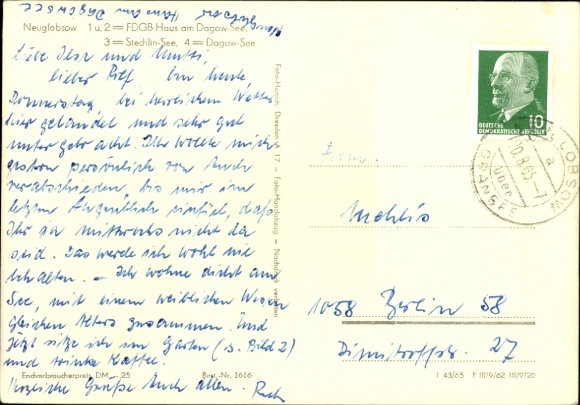 Neuglobsow 1 u. 2 = FDGB-Haus am Dagow-See,
3 = Stechlin-See, 4 = Dagow-See
Liebe Ilse und Mutti,
lieber Rolf bin heute
Donnerstag, bei herrlichem Wetter
hier gelandet und sehr gut
untergebracht. Ihr wollte mich
gestern persönlich von Euch
verabschieden, bis mir im
letzten Augenblick einfiel, daß
Ihr ja mittwochs nicht da
seid. Das werde ich wohl nie
behalten. - Ich wohne dicht am
See, mit einem weiblichen Wesen
gleichen Alters zusammen. Und
jetzt sitze ich im Garten (s. Bild 2)
und trinke Kaffee.
Herzliche Grüße Euch allen. Ruth
Endverbraucherpreis DM -,25 Best.-Nr. 1616
Foto-Handabzug - Nachdruck verboten
10
DEUTSCHE
DEMOKRATISCHE REPUBLIK
GRANSEE
über
Fam.
1058 Berlin 58
Dimitroffstr. 27
I 43/65 F III/9/62 III/9/26